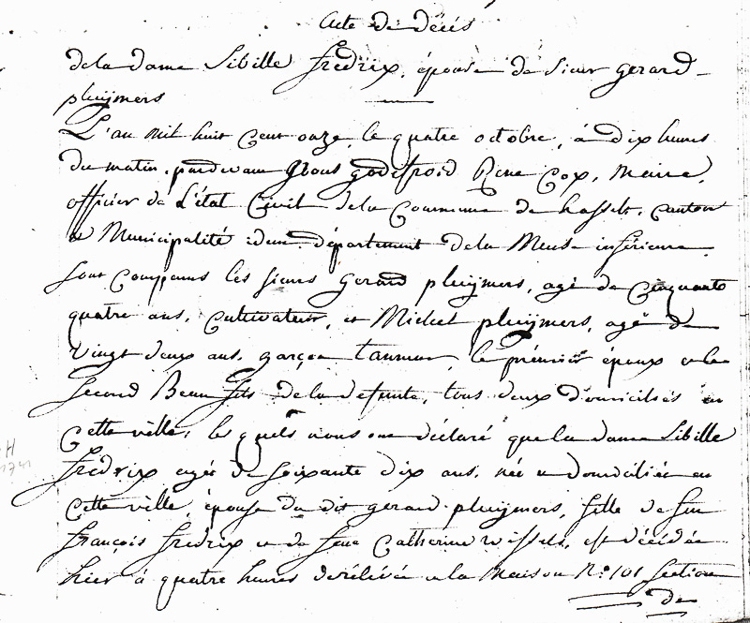 Acte de décés
de la dame Sibille fredrix, épouse de Sieur gerard
pluijmers
L'an mil huit Cent onze, le quatre octobre, à dix heures
du matin, pardevant Nous godefroid Rene Cox, Maire,
officier de L'état Civil de la Commune de hasselt, Canton
& Municipalité idem département de la Meuse inférieure
sont Comparus les sieurs Gerard pluijmers, agé de Cinquante
quatre ans, Cultivateur, et Michel pluijmers, agé de
vingt deux ans, garçon tanneur, le prémier époux et le
second Beau fils de la defunte, tous deux domiciliés en
Cette ville, les quels nous ont déclaré que la dame Sibille
fredrix agée de soixante dix ans, née et domiciliée en
Cette ville, épouse du dit gerard pluijmers, fille de feu
françois fredrix et de feue Catherine wissels, est décédée
hier à quatre heures de rélévée en la Maison N° 101 section
de
H
1741